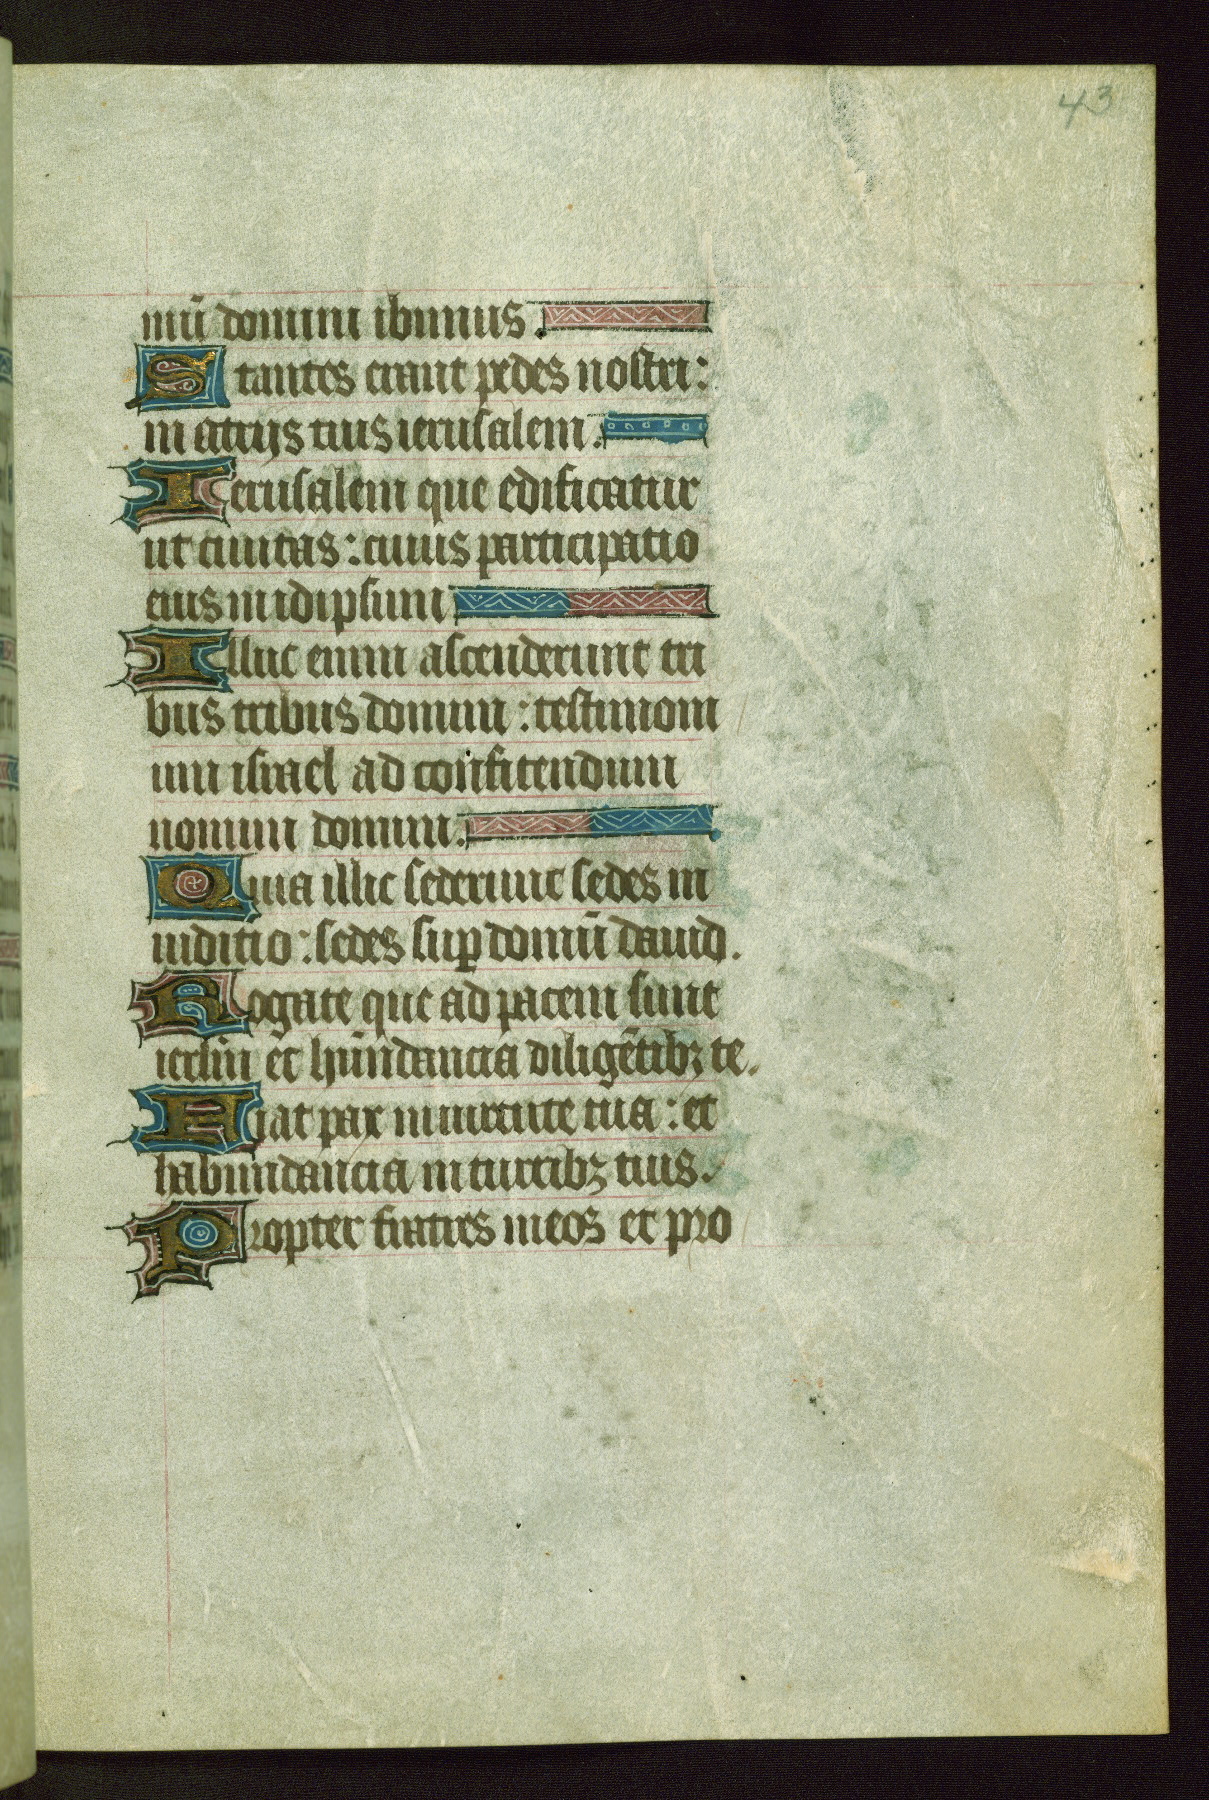 43
mū domini ibimus.
Stantes erant pedes nostri:
in atrijs tuis ierusalem.
Ierusalem que edificatur
ut ciuitas: cuius participatio
eius in idipsum.
Illuc enim ascenderunt tri
bus tribus domini: testimoni
um israel ad confitendum
nomini domini.
Quia illic sederunt sedes in
iuditio: sedes sup domū dauid.
Rogate que ad pacem sunt
ierlm̄ et hūndancia diligētibꝫ te.
Fiat pax in uirtute tua: et
habundancia in turribꝫ tuis.
Propter fratres meos et pro